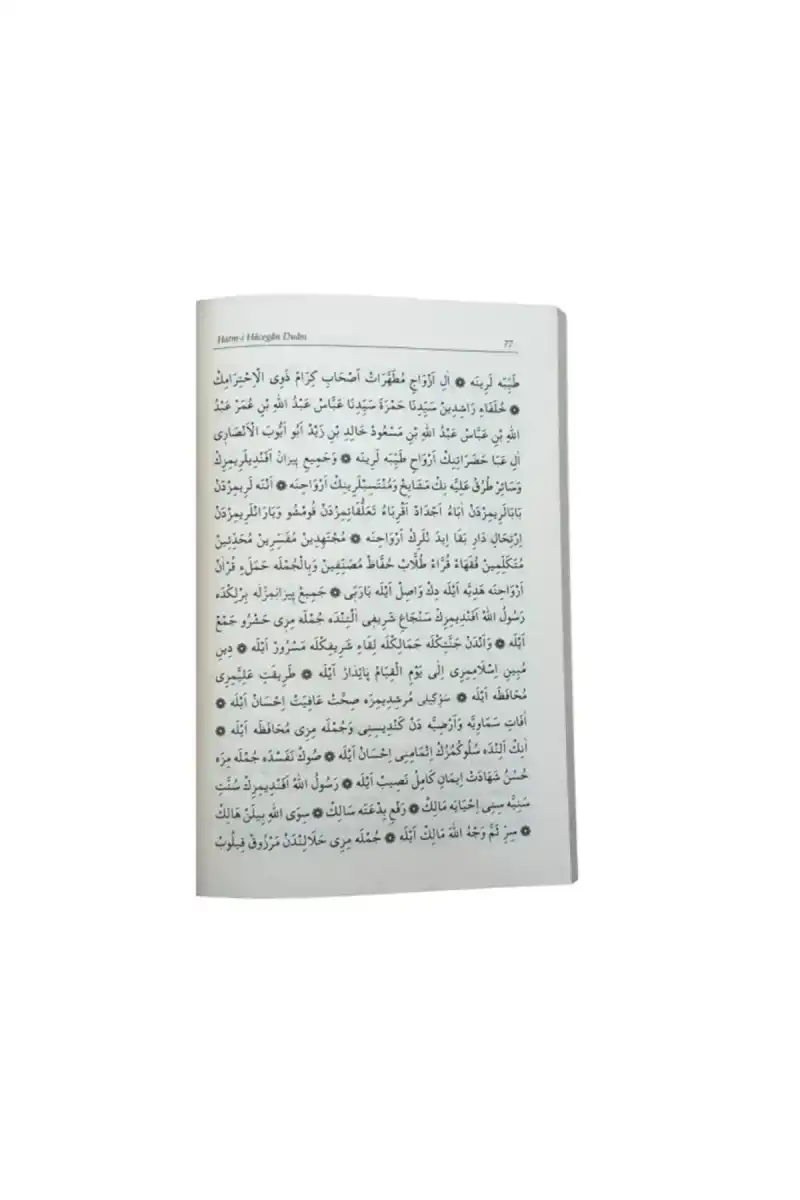 Hatm-i Hâcegân Duâsı 77
طَيِّبَه لَرِينَه ❁ اٰلِ اَزْوَاجِ مُطَهَّرَاتْ اَصْحَابِ كِرَامْ ذَوِى الْاِحْتِرَامِكْ
❁ خُلَفَاءِ رَاشِدِينْ سَيِّدِنَا حَمْزَةَ سَيِّدِنَا عَبَّاسْ عَبْدُ اللهِ بْنِ عُمَرْ عَبْدُ
اللهِ بْنِ عَبَّاسْ عَبْدُ اللهِ بْنِ مَسْعُودْ خَالِدِ بْنِ زَيْدْ اَبُو اَيُّوبَ الْاَنْصَارِى
اٰلِ عَبَا حَضَرَاتِنِكْ اَرْوَاحِ طَيِّبَه لَرِينَه ❁ وَجَمِيعِ پِيرَانْ اَفَنْدِيلَرِيمِزِكْ
وَسَائِرْ طُرُقِ عَلِيَّه نِكْ مَشَايِخْ وَمُنْتَسِبْلَرِينِكْ اَرْوَاحِنَه ❁ اَنْنَه لَرِيمِزْدَنْ
بَابَالَرِيمِزْدَنْ اٰبَاءْ اَجْدَادْ اَقْرِبَاءْ تَعَلُّقَاتِمِزْدَنْ قُومْشُو وَيَارَانْلَرِيمِزْدَنْ
اِرْتِحَالِ دَارِ بَقَا اِيدَ نْلَرِكْ اَرْوَاحِنَه ❁ مُجْتَهِدِينْ مُفَسِّرِينْ مُحَدِّثِينْ
مُتَكَلِّمِينْ فُقَهَاءْ قُرَّاءْ طُلَّابْ حُفَّاظْ مُصَنِّفِينْ وَبِالْجُمْلَه حَمَلَءِ قُرْاٰنْ
اَرْوَاحِنَه هَدِيَّه اَيْلَه دِكْ وَاصِلْ اَيْلَه يَارَبِّى ❁ جَمِيعِ پِيرَانِمِزْلَه بِرْلِكْدَه
رَسُولُ اللهْ اَفَنْدِيمِزِكْ سَنْجَاغِ شَرِيفِى اٰلْتِنْدَه جُمْلَه مِزِى حَشْرُو جَمْعْ
اَيْلَه ❁ وَاٰنْدَنْ جَنَّتِكْلَه جَمَالِكْلَه لِقَاءِ شَرِيفِكْلَه مَسْرُورْ اَيْلَه ❁ دِينِ
مُبِينِ اِسْلَامِمِزِى اِلٰى يَوْمِ الْقِيَامْ پَايِدَارْ اَيْلَه ❁ طَرِيقَتِ عَلِيَّمِزِى
مُحَافَظَه اَيْلَه ❁ سَوْكِيلِى مُرْشِدِيمِزَه صِحَّتْ عَافِيَتْ اِحْسَانْ اَيْلَه ❁
اٰفَاتِ سَمَاوِيَّه وَاَرْضِيَّه دَنْ كَنْدِيسِنِى وَجُمْلَه مِزِى مُحَافَظَه اَيْلَه ❁
اٰنِكْ اَلِنْدَه سُلُوكُمُزُكْ اِتْمَامِنِى اِحْسَانْ اَيْلَه ❁ صُوكْ نَفَسْدَه جُمْلَه مِزَه
حُسْنُ شَهَادَتْ اِيمَانِ كَامِلْ نَصِيبْ اَيْلَه ❁ رَسُولُ اللهْ اَفَنْدِيمِزِكْ سُنَّتِ
سَنِيَّه سِنِى اِحْيَايَه مَالِكْ ❁ رَفْعِ بِدْعَتَه سَالِكْ ❁ سِوَى اللهِ بِيلَنْ هَالِكْ
❁ سِرِّ ثَمَّ وَجْهُ اللهَ مَالِكْ اَيْلَه ❁ جُمْلَه مِزِى حَلَالِنْدَنْ مَرْزُوقْ قِيلُوبْ